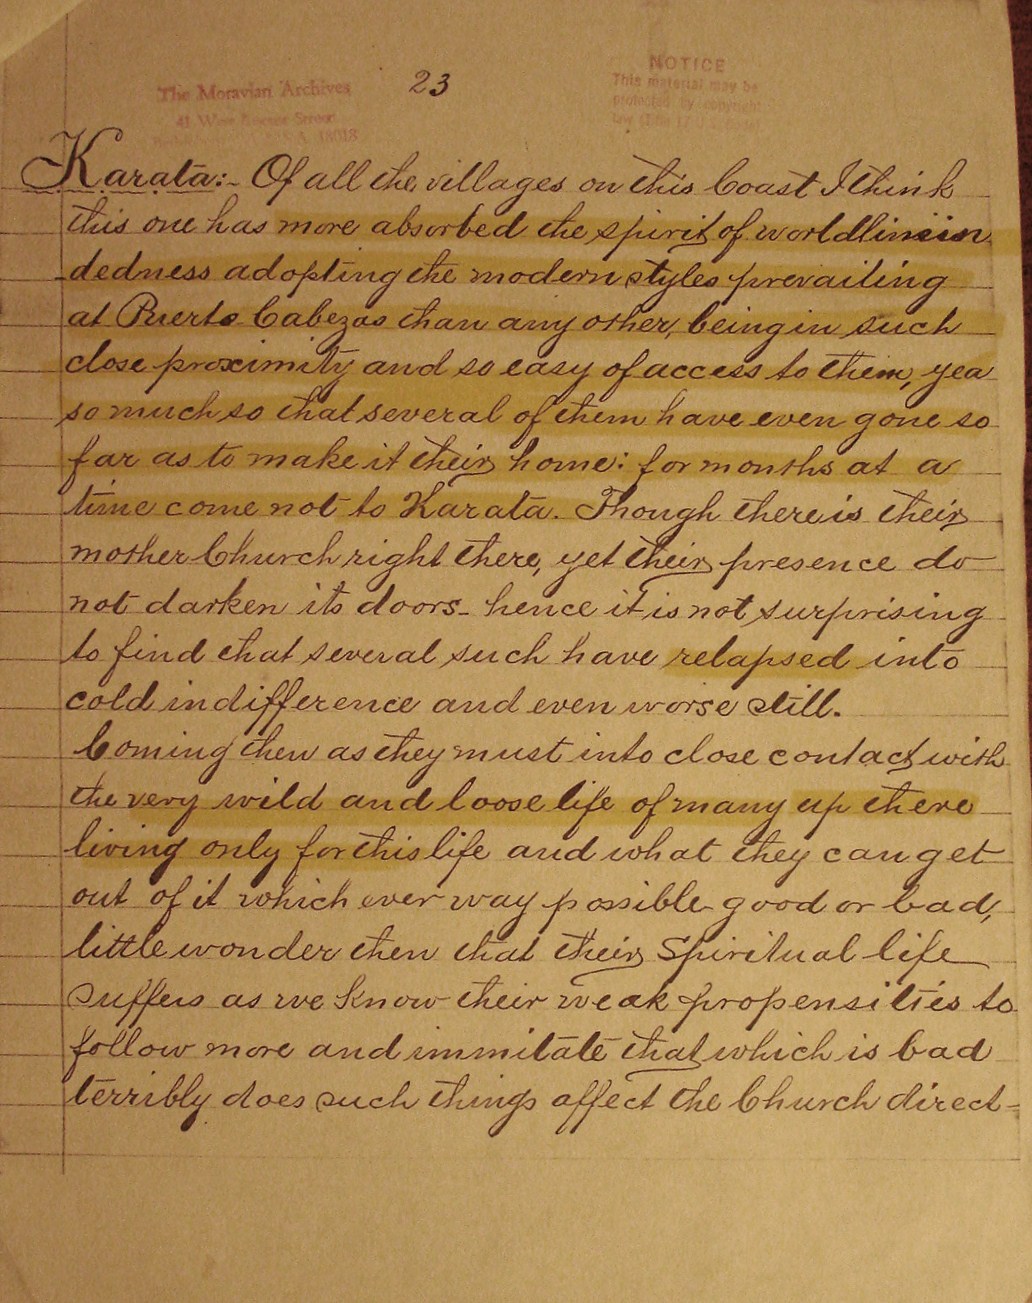 The Moravian Archives
41 West Locust Street
18018
23
NOTICE
This material may be
protected by copyright
law (Title 17 U.S. Code)
Karata:- Of all the villages on this Coast I think
this one has more absorbed the spirit of worldlimiin
dedness adopting the modern styles prevailing
at Puerto Cabezas than any other, being in such
close proximity and so easy of access to them, yea
so much so that several of them have even gone so
far as to make it their home: for months at a
time come not to Karata. Though there is their
mother Church right there, yet their presence do
not darken its doors - hence it is not surprising
to find that several such have relapsed into
cold indifference and even worse still.
Coming then as they must into close contact with
the very wild and loose life of many up there
living only for this life and what they can get
out of it which ever way possible good or bad,
little wonder then that their Spiritual life
suffers as we know their weak propensities to
follow more and immitate that which is bad
terribly does such things affect the Church direct-